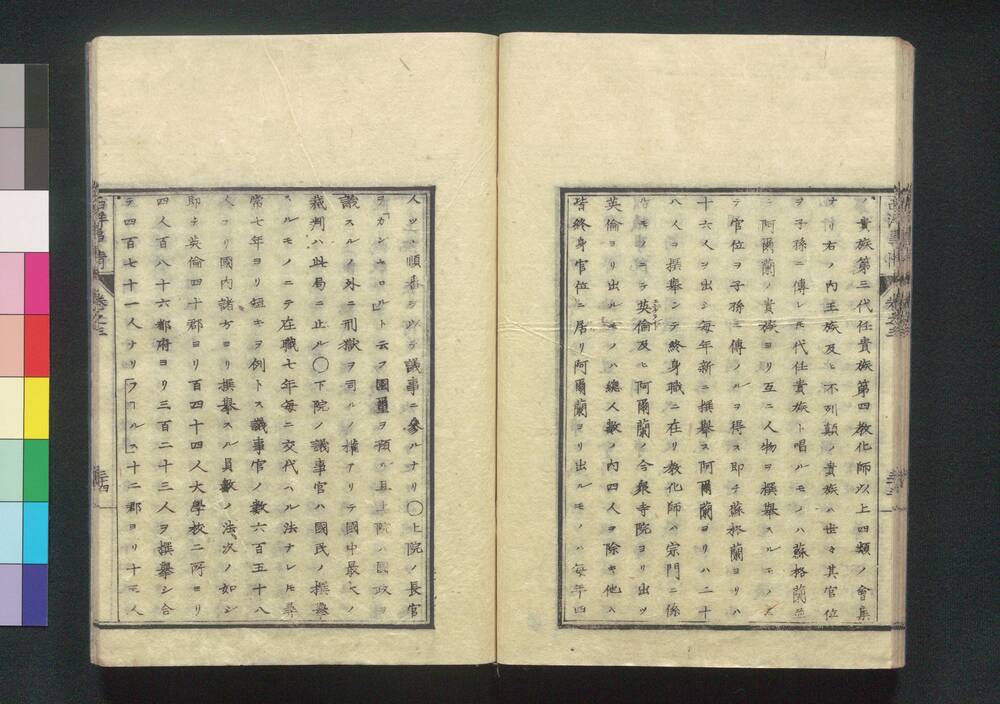 ノ貴族第三代任貴族第四教化師以上四類ノ會集
ナリ右ノ内王族及ヒ不列顛ノ貴族ハ世々其官位
ヲ子孫ニ傳レトモ代任貴族ト唱ルモノハ蘇格蘭並
ニ阿爾蘭ノ貴族ヨリ互ニ人物ヲ撰擧スルモノニ
テ官位ヲ子孫ニ傳ノルヲ得ス即チ蘇格蘭ヨリハ
十六人ヲ出シ毎年新ニ撰擧ス阿爾蘭ヨリハ二十
八人ヲ撰擧シテ終身職ニ在リ教化師ハ宗門ニ係
ルモノニテ英倫及ヒ阿爾蘭ノ合衆寺院ヨリ出ツ
英倫ヨリ出ルモノハ總人數ノ内四人ヲ除キ他ハ
皆終身官位ニ居リ阿爾蘭ヨリ出ルモノハ毎年四
西洋事情 卷之三 三十三
人ツヽ順番ヲ以テ議事ニ參ルナリ〇上院ノ長官
ヲ「カンセロル」ト云フ國璽ヲ預ル且上院ハ國政ヲ
議スルノ外ニ刑獄ヲ司ルノ權アリテ國中最大ノ
裁判ハ此局ニ止ル〇下院ノ議事官ハ國民ノ撰擧
スルモノニテ在職七年毎ニ交代スル法ナレトモ尋
常七年ヨリ短キヲ例トス議事官ノ數六百五十八
人アリ國内諸方ヨリ撰擧スル員數ノ法次ノ如シ
即チ英倫四十郡ヨリ百四十四人大學校二所ヨリ
四人百八十六都府ヨリ三百二十三人ヲ撰擧シ合
テ四百七十一人ナリ「ワールス」十二郡ヨリ十五人
西洋事情 卷之三 三十四